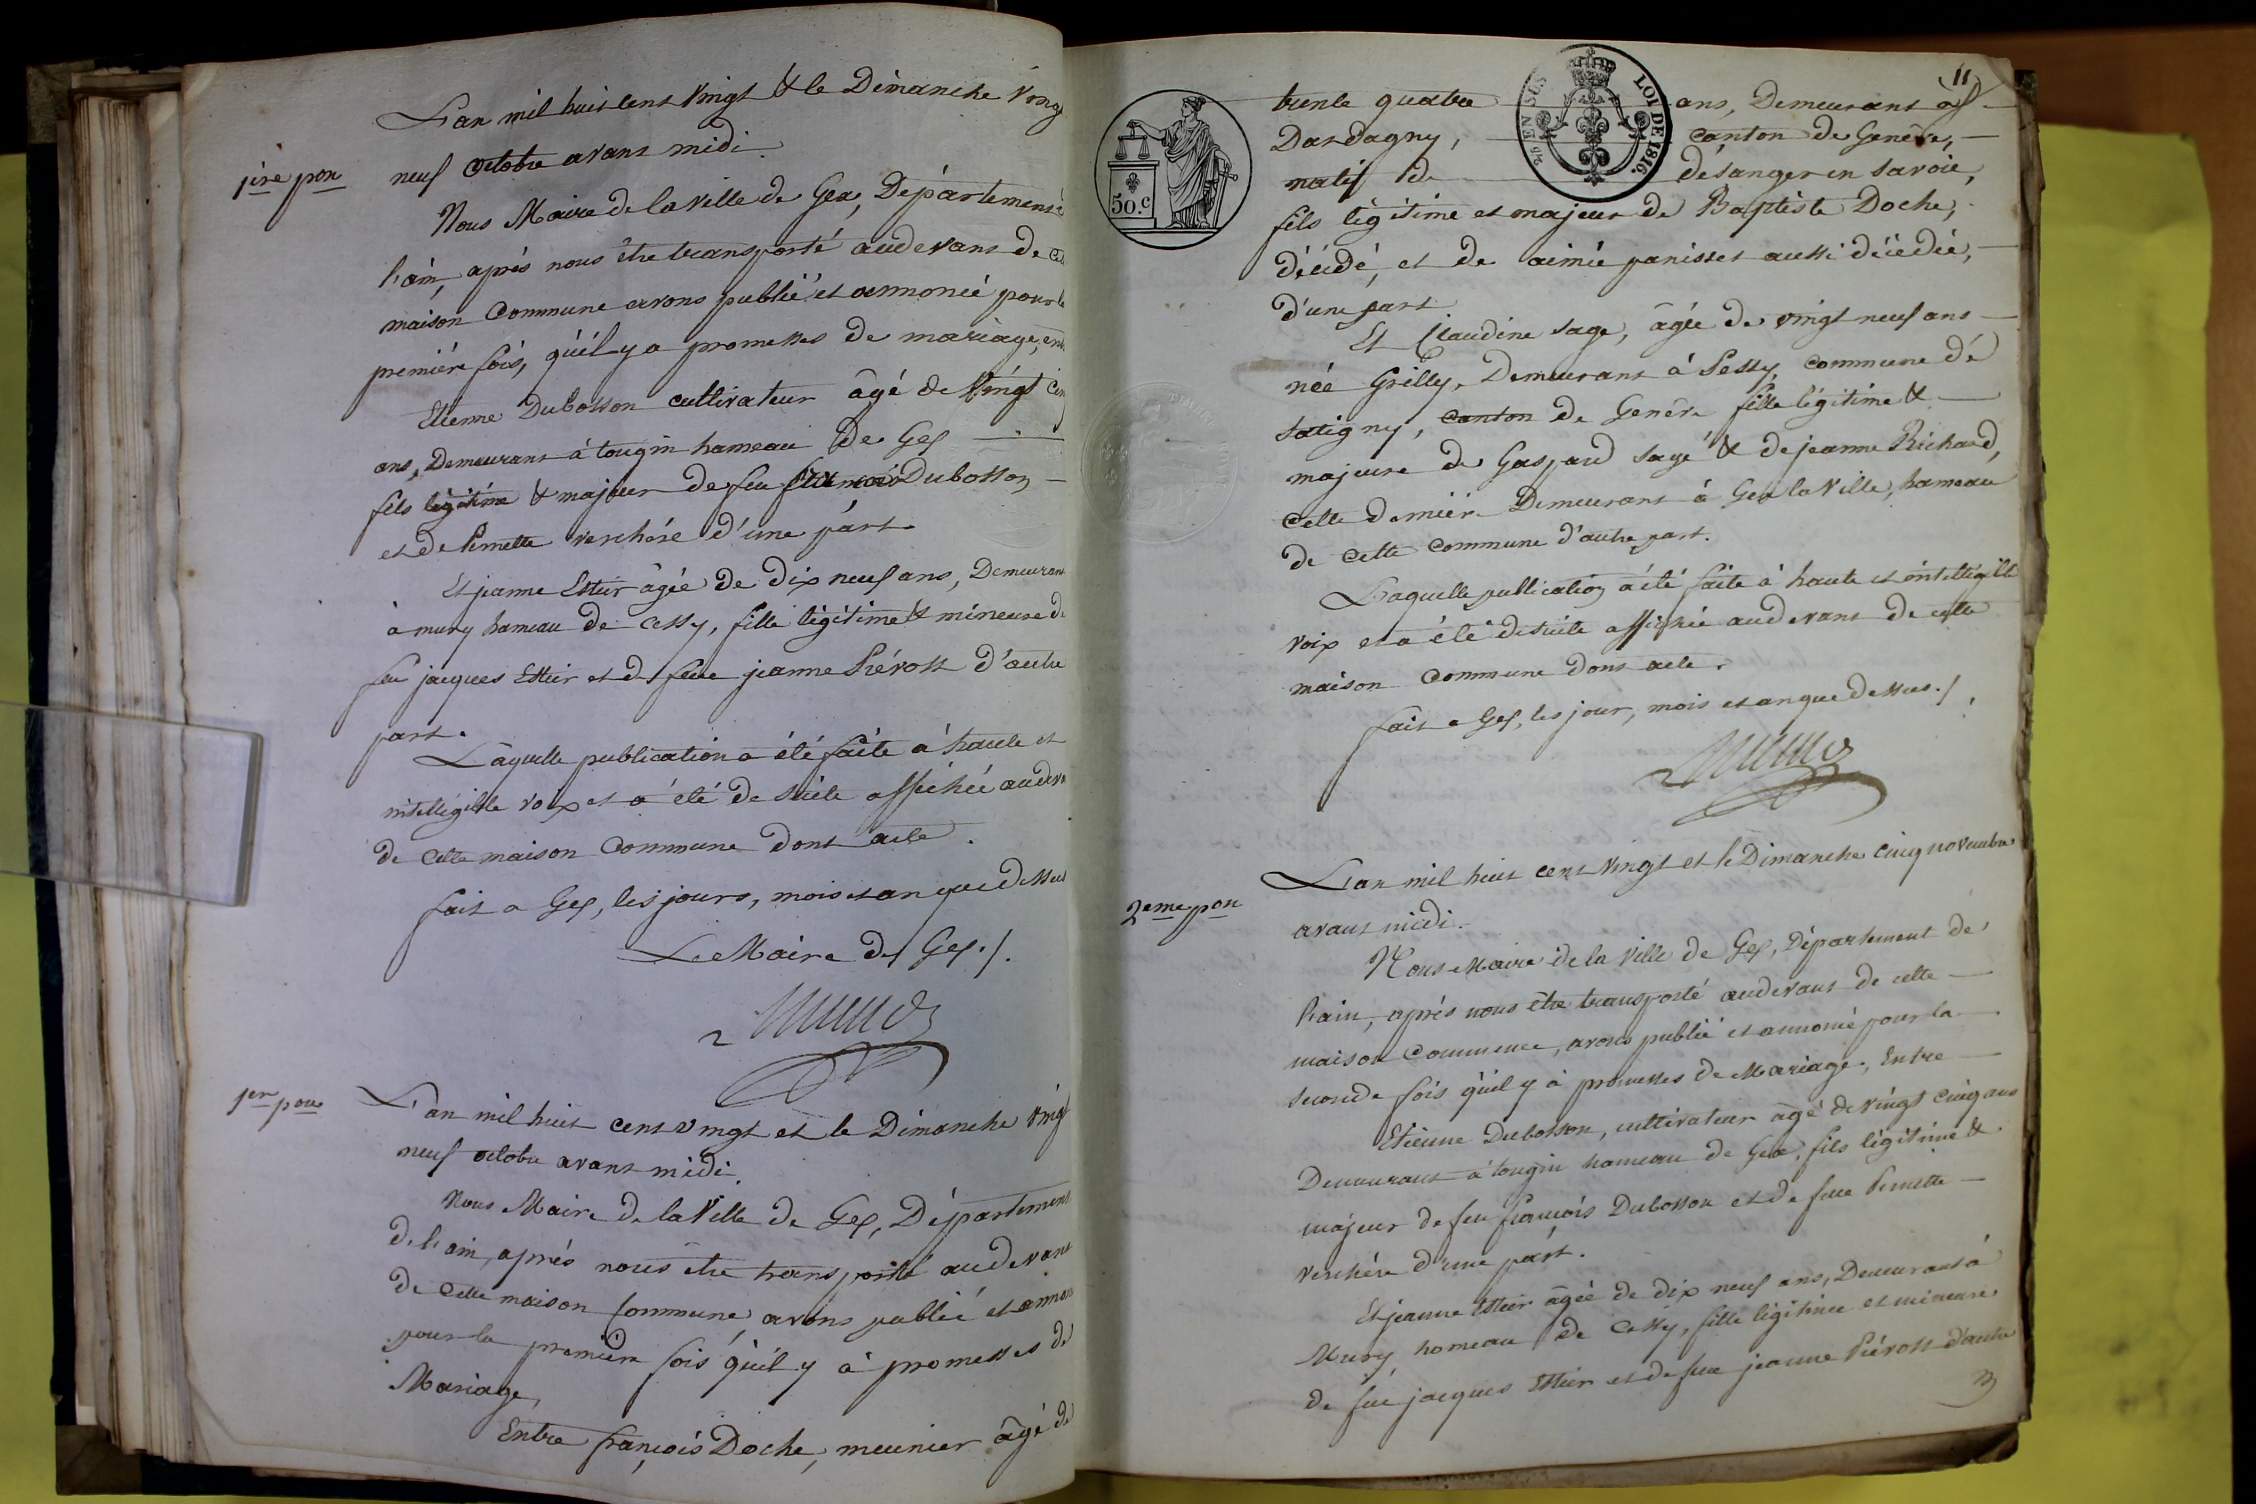 L'an mil huit cent vingt & le Dimanche Vingt
1ire pon
neuf octobre avant midi.
Nous Maire de la ville de Gex, Département de
l'ain, après nous être transporté audevant de
maison Commune avons publié et annoncé pour la
première fois, qu'il y a promesses de mariage, entre
Etienne Dubosson cultivateur âgé de Vingt cinq
ans, Demeurant à tougin hameau de Gex
fils légitime & majeur de feu françois Dubosson
et de Pernette verchére d'une part.
Et jeanne Estier âgée de dix neuf ans, Demeurant
à mury hameau de Cessy, fille légitime & mineure de
feu jacques Estier et de feue jeanne Piévost d'autre
part.
Laquelle publication a été faite à haute et
intelligible voix et a été de suite affichée audevant
de cette maison Commune dont acte.
fait a Gex, les jours, mois et an que dessus
Le Maire de Gex./.
1ere pon
L'an mil huit cent vingt et le Dimanche vingt
neuf octobre avant midi.
Nous Maire de la Ville de Gex, Département
de l'ain, après nous être transporté audevant
de cette maison Commune avons publié et annoncé
pour la première fois qu'il y à promesses de
Mariage,
Entre françois Doche, meunier âgé de
11
50.c
EN SUS
LOI DE 1816.
trente quatre ans, Demeurant à
Dardagny, canton de Genêve,
natif de désanger en savoie,
fils légitime et majeur de Baptiste Doche,
décédé, et de aimée panisset aussi décédée,
d'une part
Et Claudine sage, âgée de vingt neuf ans
née Grilly, Demeurant à Pessy, commune dé
satigny, canton de Genêve fille légitime &
majeure de Gaspard sage & de jeanne Richard,
cette dernière Demeurant à Gex la Ville, hameau
de cette commune d'autre part.
Laquelle publication a été faite à haute et intelligible
voix et a été desuite affichée audevant de cette
maison Commune dont acte.
fait a Gex, les jour, mois et an que dessus./.
L'an mil huit cent Vingt et le Dimanche cinq novembre
2eme pon
avant midi.
Nous Maire de la Ville de Gex, Département de
l'ain, après nous être transporté audevant de cette
maison Commune, avons publié et annoncé pour la
seconde fois qu'il y à promesses de Mariage, Entre
Etienne Dubosson, cultivateur âgé de vingt cinq ans
Demeurant à tougin hameau de Gex, fils légitime &
majeur de feu françois Dubosson et de feue Pernette
verchére d'une part.
Et jeanne Estier âgée de dix neuf ans, Demeurant à
Mury hameau de Cessy, fille légitime et mineure
de feu jacques Estier et de feue jeanne Piévost d'autre